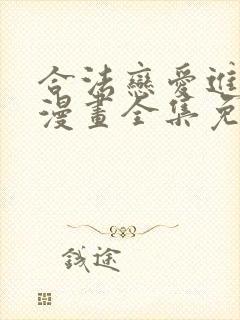 合法戀愛進
漫畫全集免
錢途